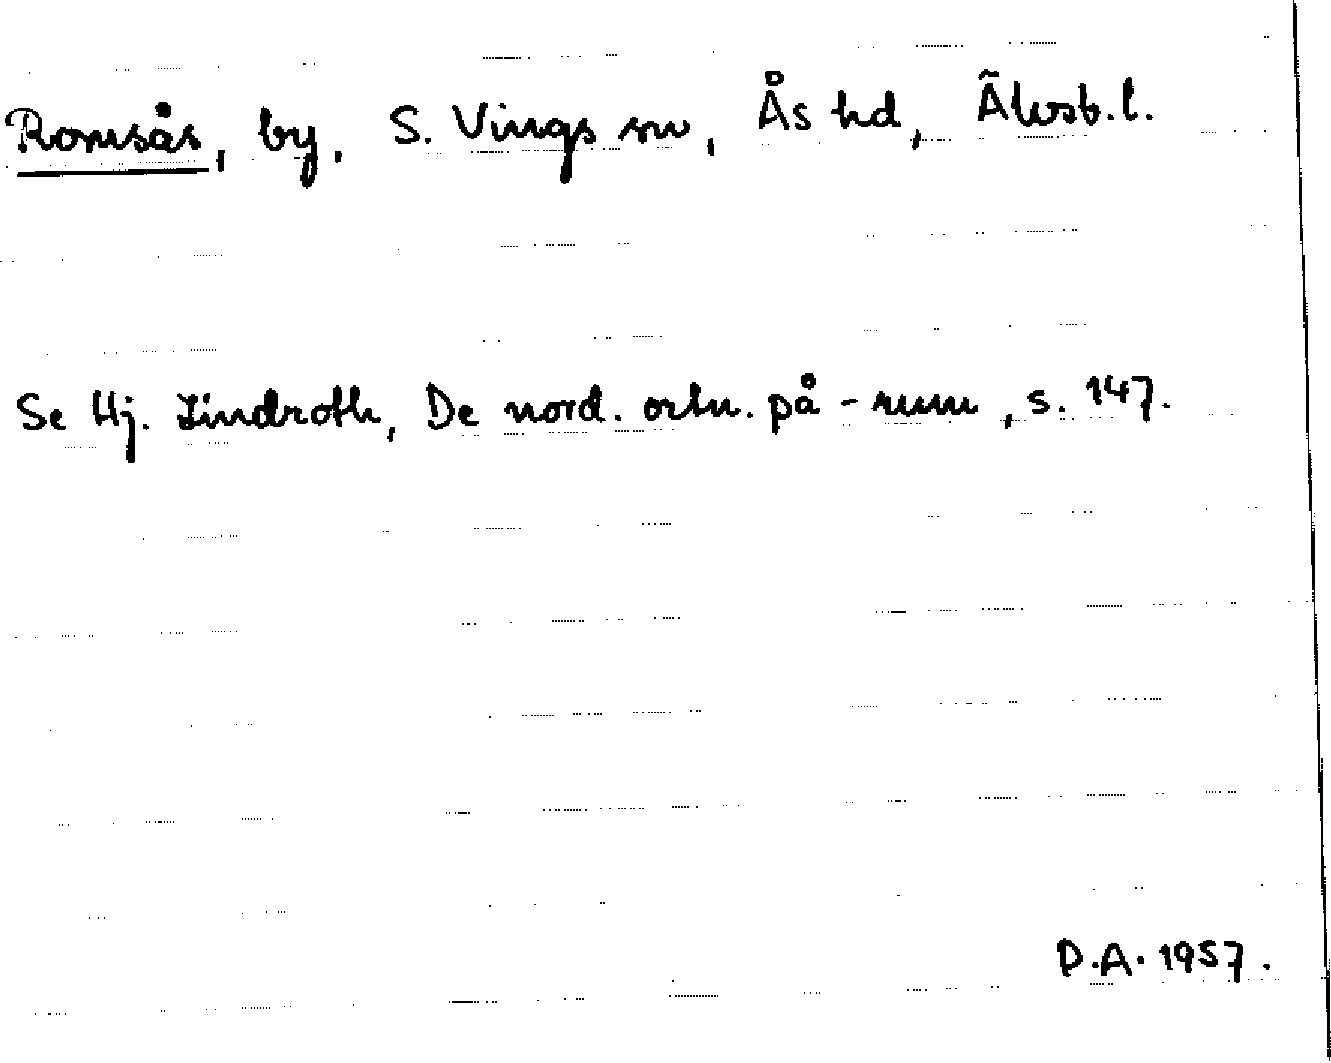 Romsås, by, S. Vings sn, Ås hd, Älvsb.l.
Se Hj. Lindroth, De nord. ortn. på -rum, s. 147.
D.A. 1957.